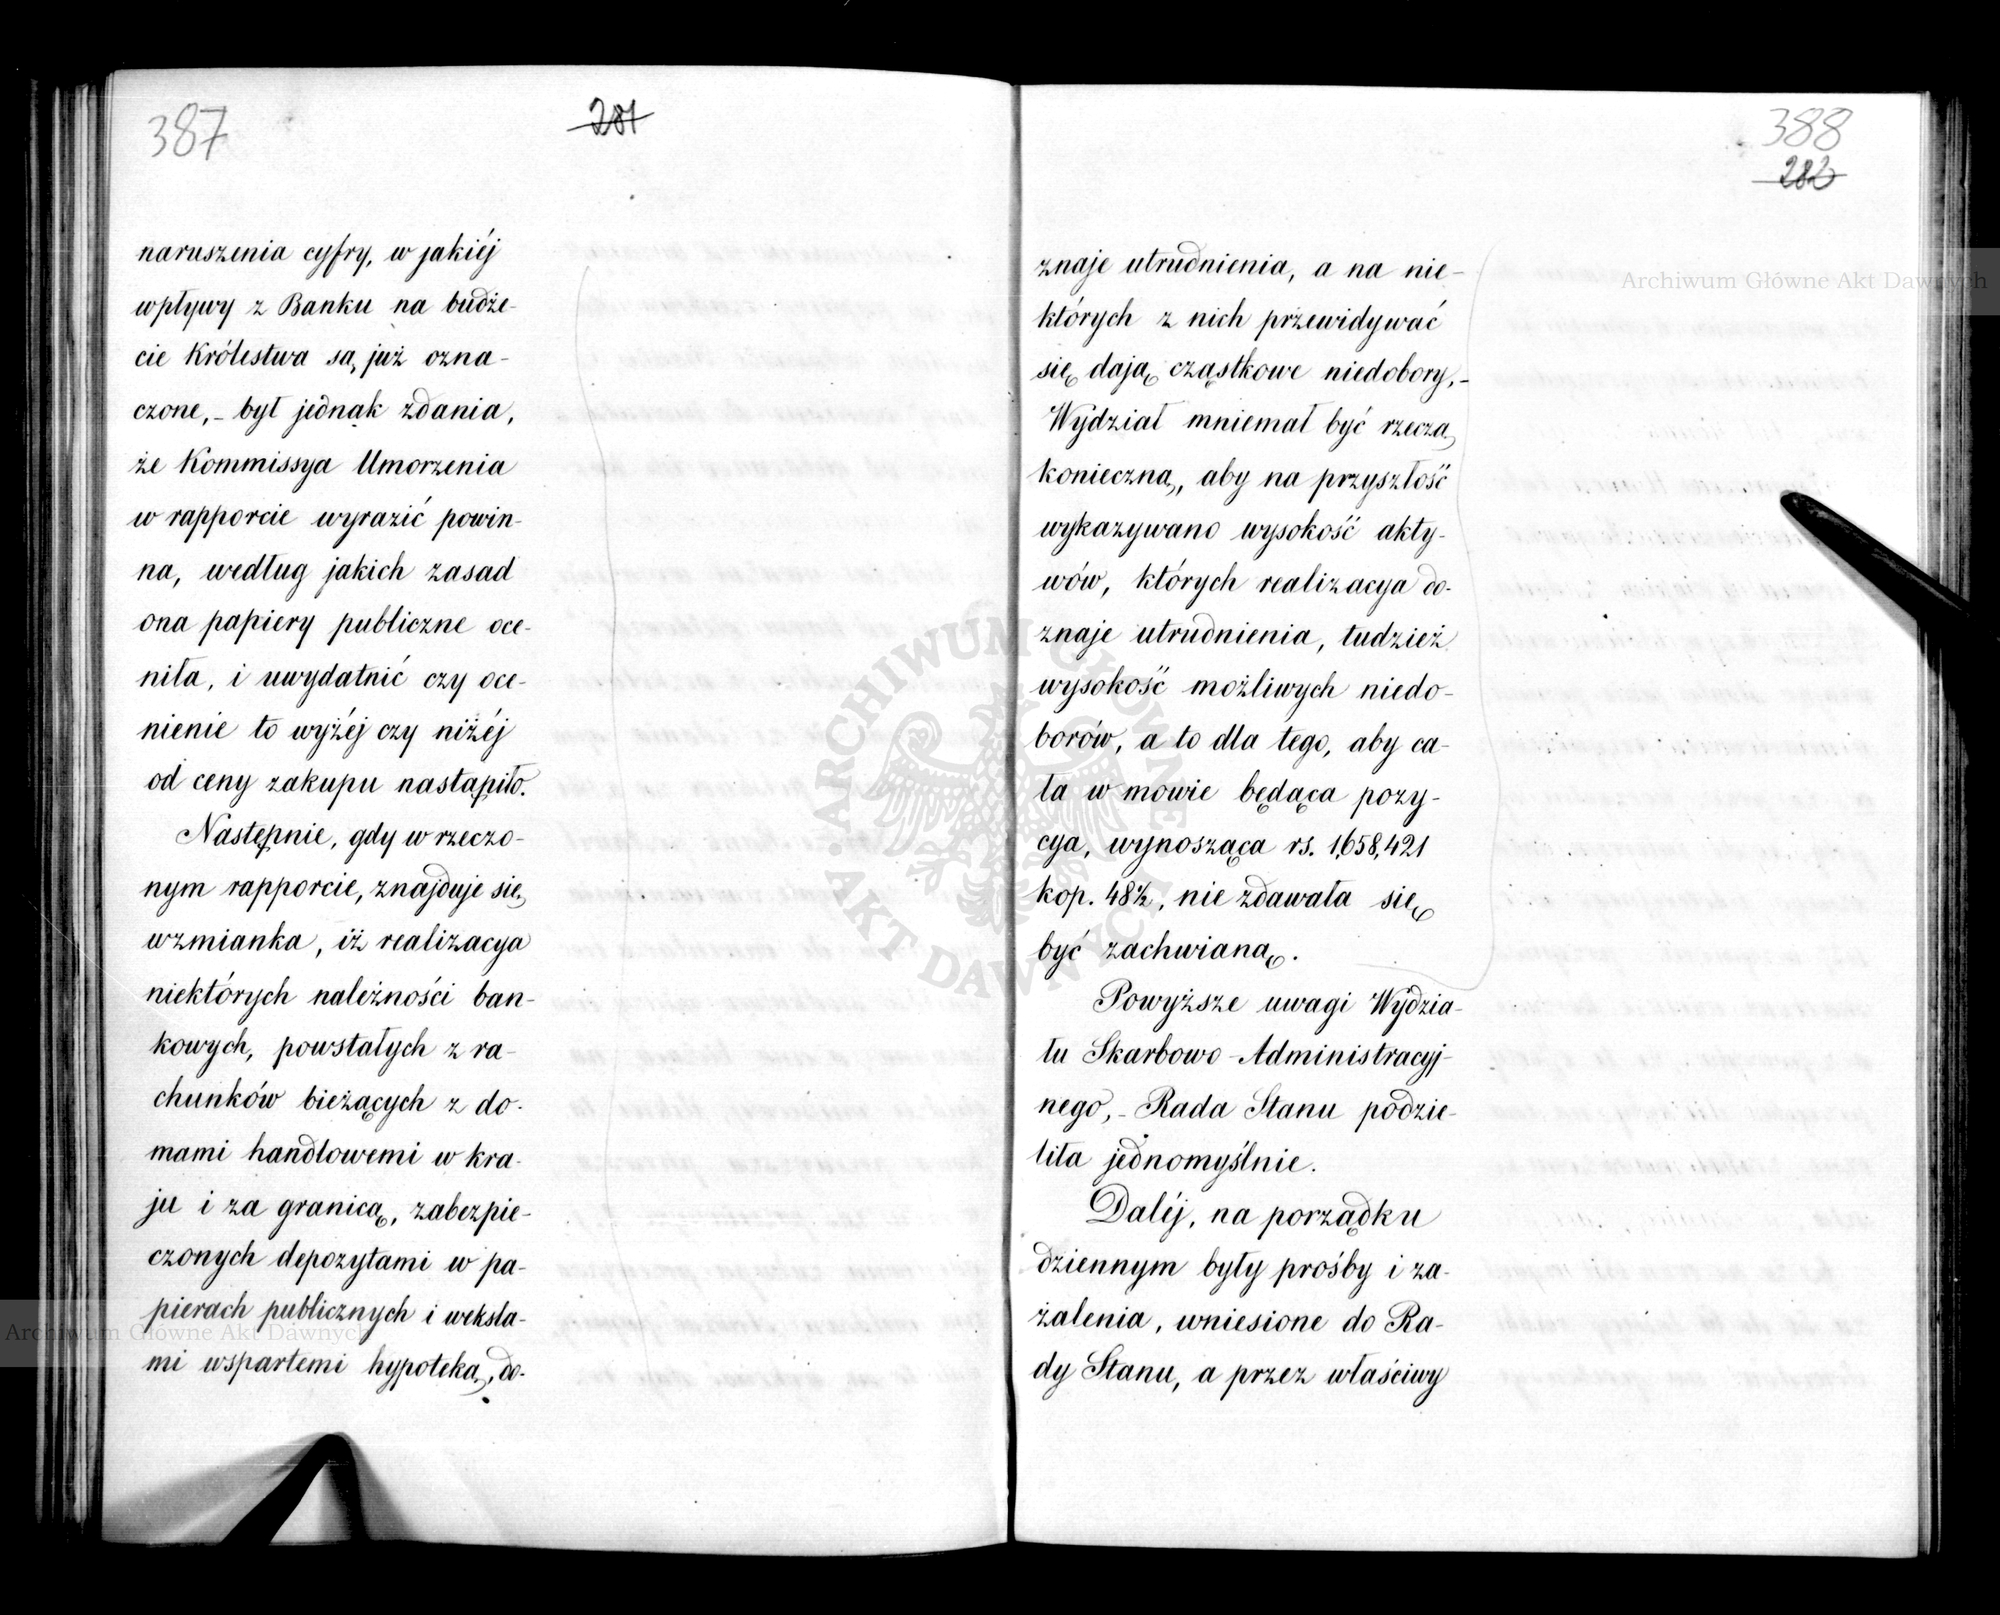 387
281
naruszenia cyfry, w jakiéj
wpływy z Banku na budże-
cie Królestwa są, już ozna-
czone,- był jednak zdania,
że Kommissya Umorzenia
w rapporcie wyrazić powin-
na, według jakich zasad
ona papiery publiczne oce-
niła, i uwydatnić czy oce-
nienie to wyżéj czy niżéj
od ceny zakupu nastąpiło.
Następnie, gdy w rzeczo-
nym rapporcie, znajduje się,
wzmianka, iż realizacya
niektórych należności ban-
kowych, powstałych z ra-
chunków bieżących z do-
mami handlowemi w kra-
ju i za granicą, zabezpie-
czonych depozytami w pa-
pierach publicznych i weksla-
mi wspartemi hypoteką, do-
388
282
znaje utrudnienia, a na nie-
których z nich przewidywać
się dają cząstkowe niedobory,-
Wydział mniemał być rzeczą
konieczną, aby na przyszłość
wykazywano wysokość akty-
wów, których realizacya do-
znaje utrudnienia, tudzież
wysokość możliwych niedo-
borów, a to dla tego, aby ca-
ła w mowie będąca pozy-
cya, wynosząca rs. 1,658,421
kop. 48½, nie zdawała się
być zachwianą.
Powyższe uwagi Wydzia-
łu Skarbowo-Administracyj-
nego,- Rada Stanu podzie-
liła jednomyślnie.
Daléj, na porządku
dziennym były prośby i za-
żalenia, wniesione do Ra-
dy Stanu, a przez właściwy
Archiwum Główne Akt Dawnych
Archiwum Główne Akt Dawnych
ARCHIWUM GŁÓWNE
AKT DAWNYCH